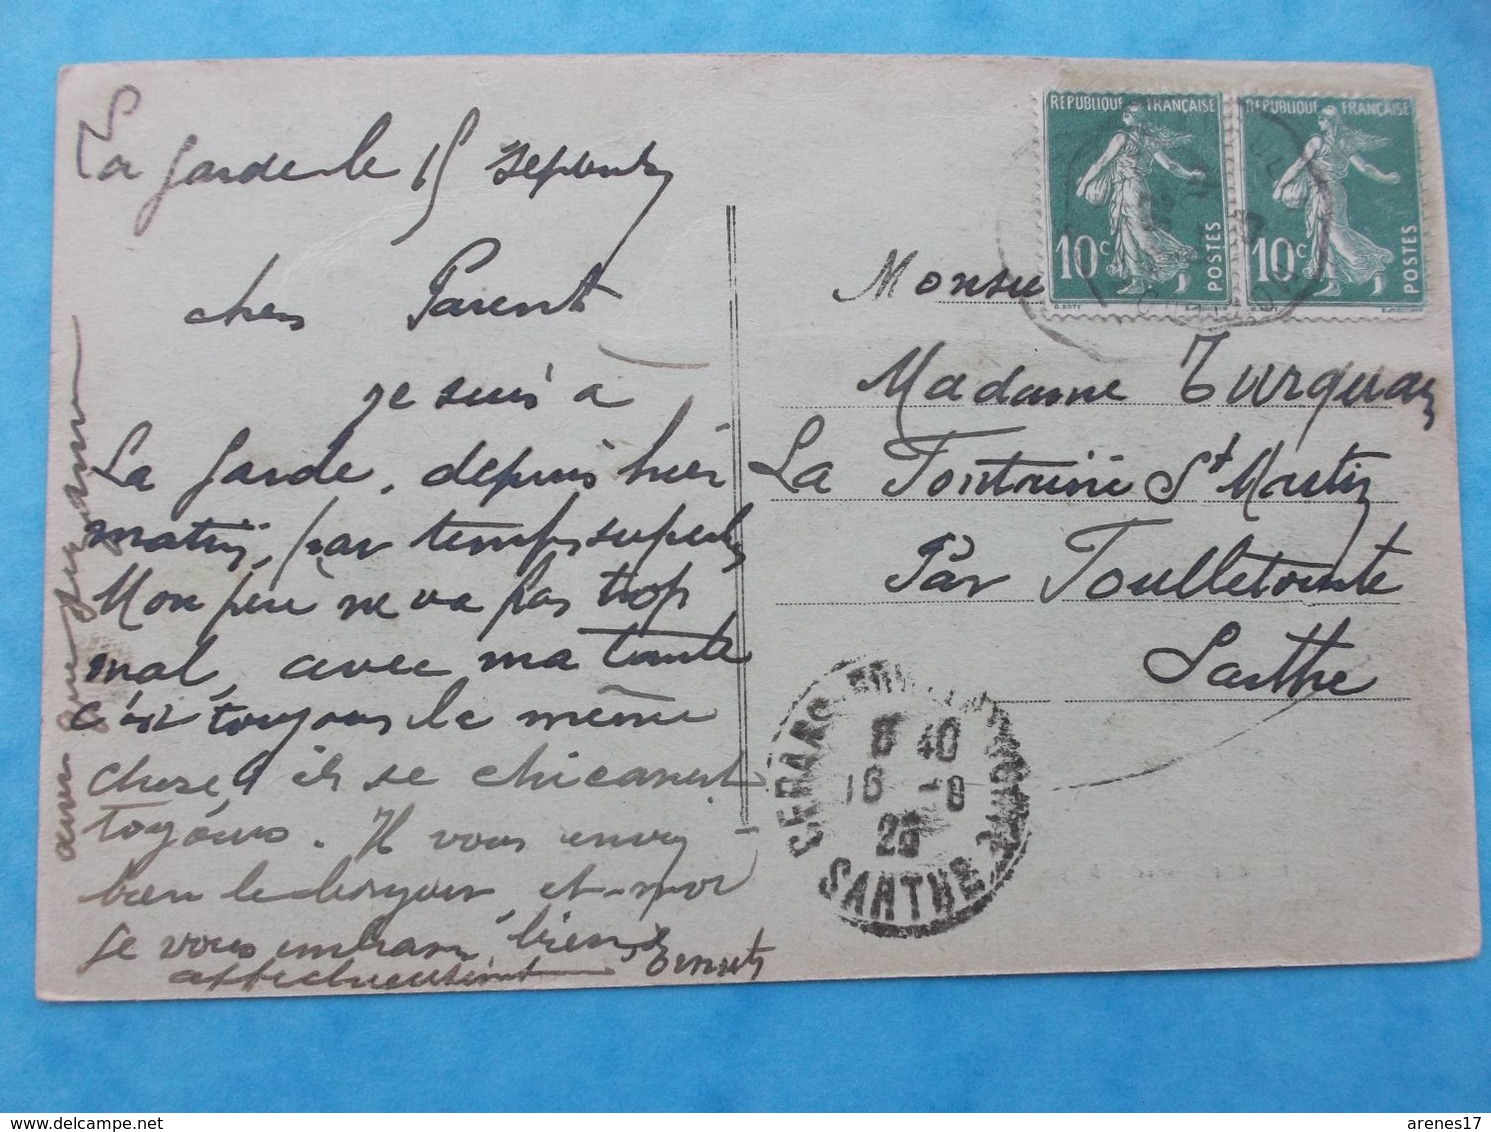 La Garde le 15 septembre
chers Parent
je suis à
La Garde, depuis hier
matin, par temps superbe
Mon père ne va pas trop
mal, avec ma tante
c'est toujours la même
chose, ils se chicanent
toujours. Il vous envoy
bien le bonjour, et moi
je vous embrasse bien
affectueusement
REPUBLIQUE FRANÇAISE
10c POSTES
O. ROTY
REPUBLIQUE FRANÇAISE
10c POSTES
Monsieu
Madame Turquay
La Fontaine St Martin
Par Foulletourte
Sarthe
CERANS-FOULLETOURTE
8 40
16 -9
SARTHE
arenes17